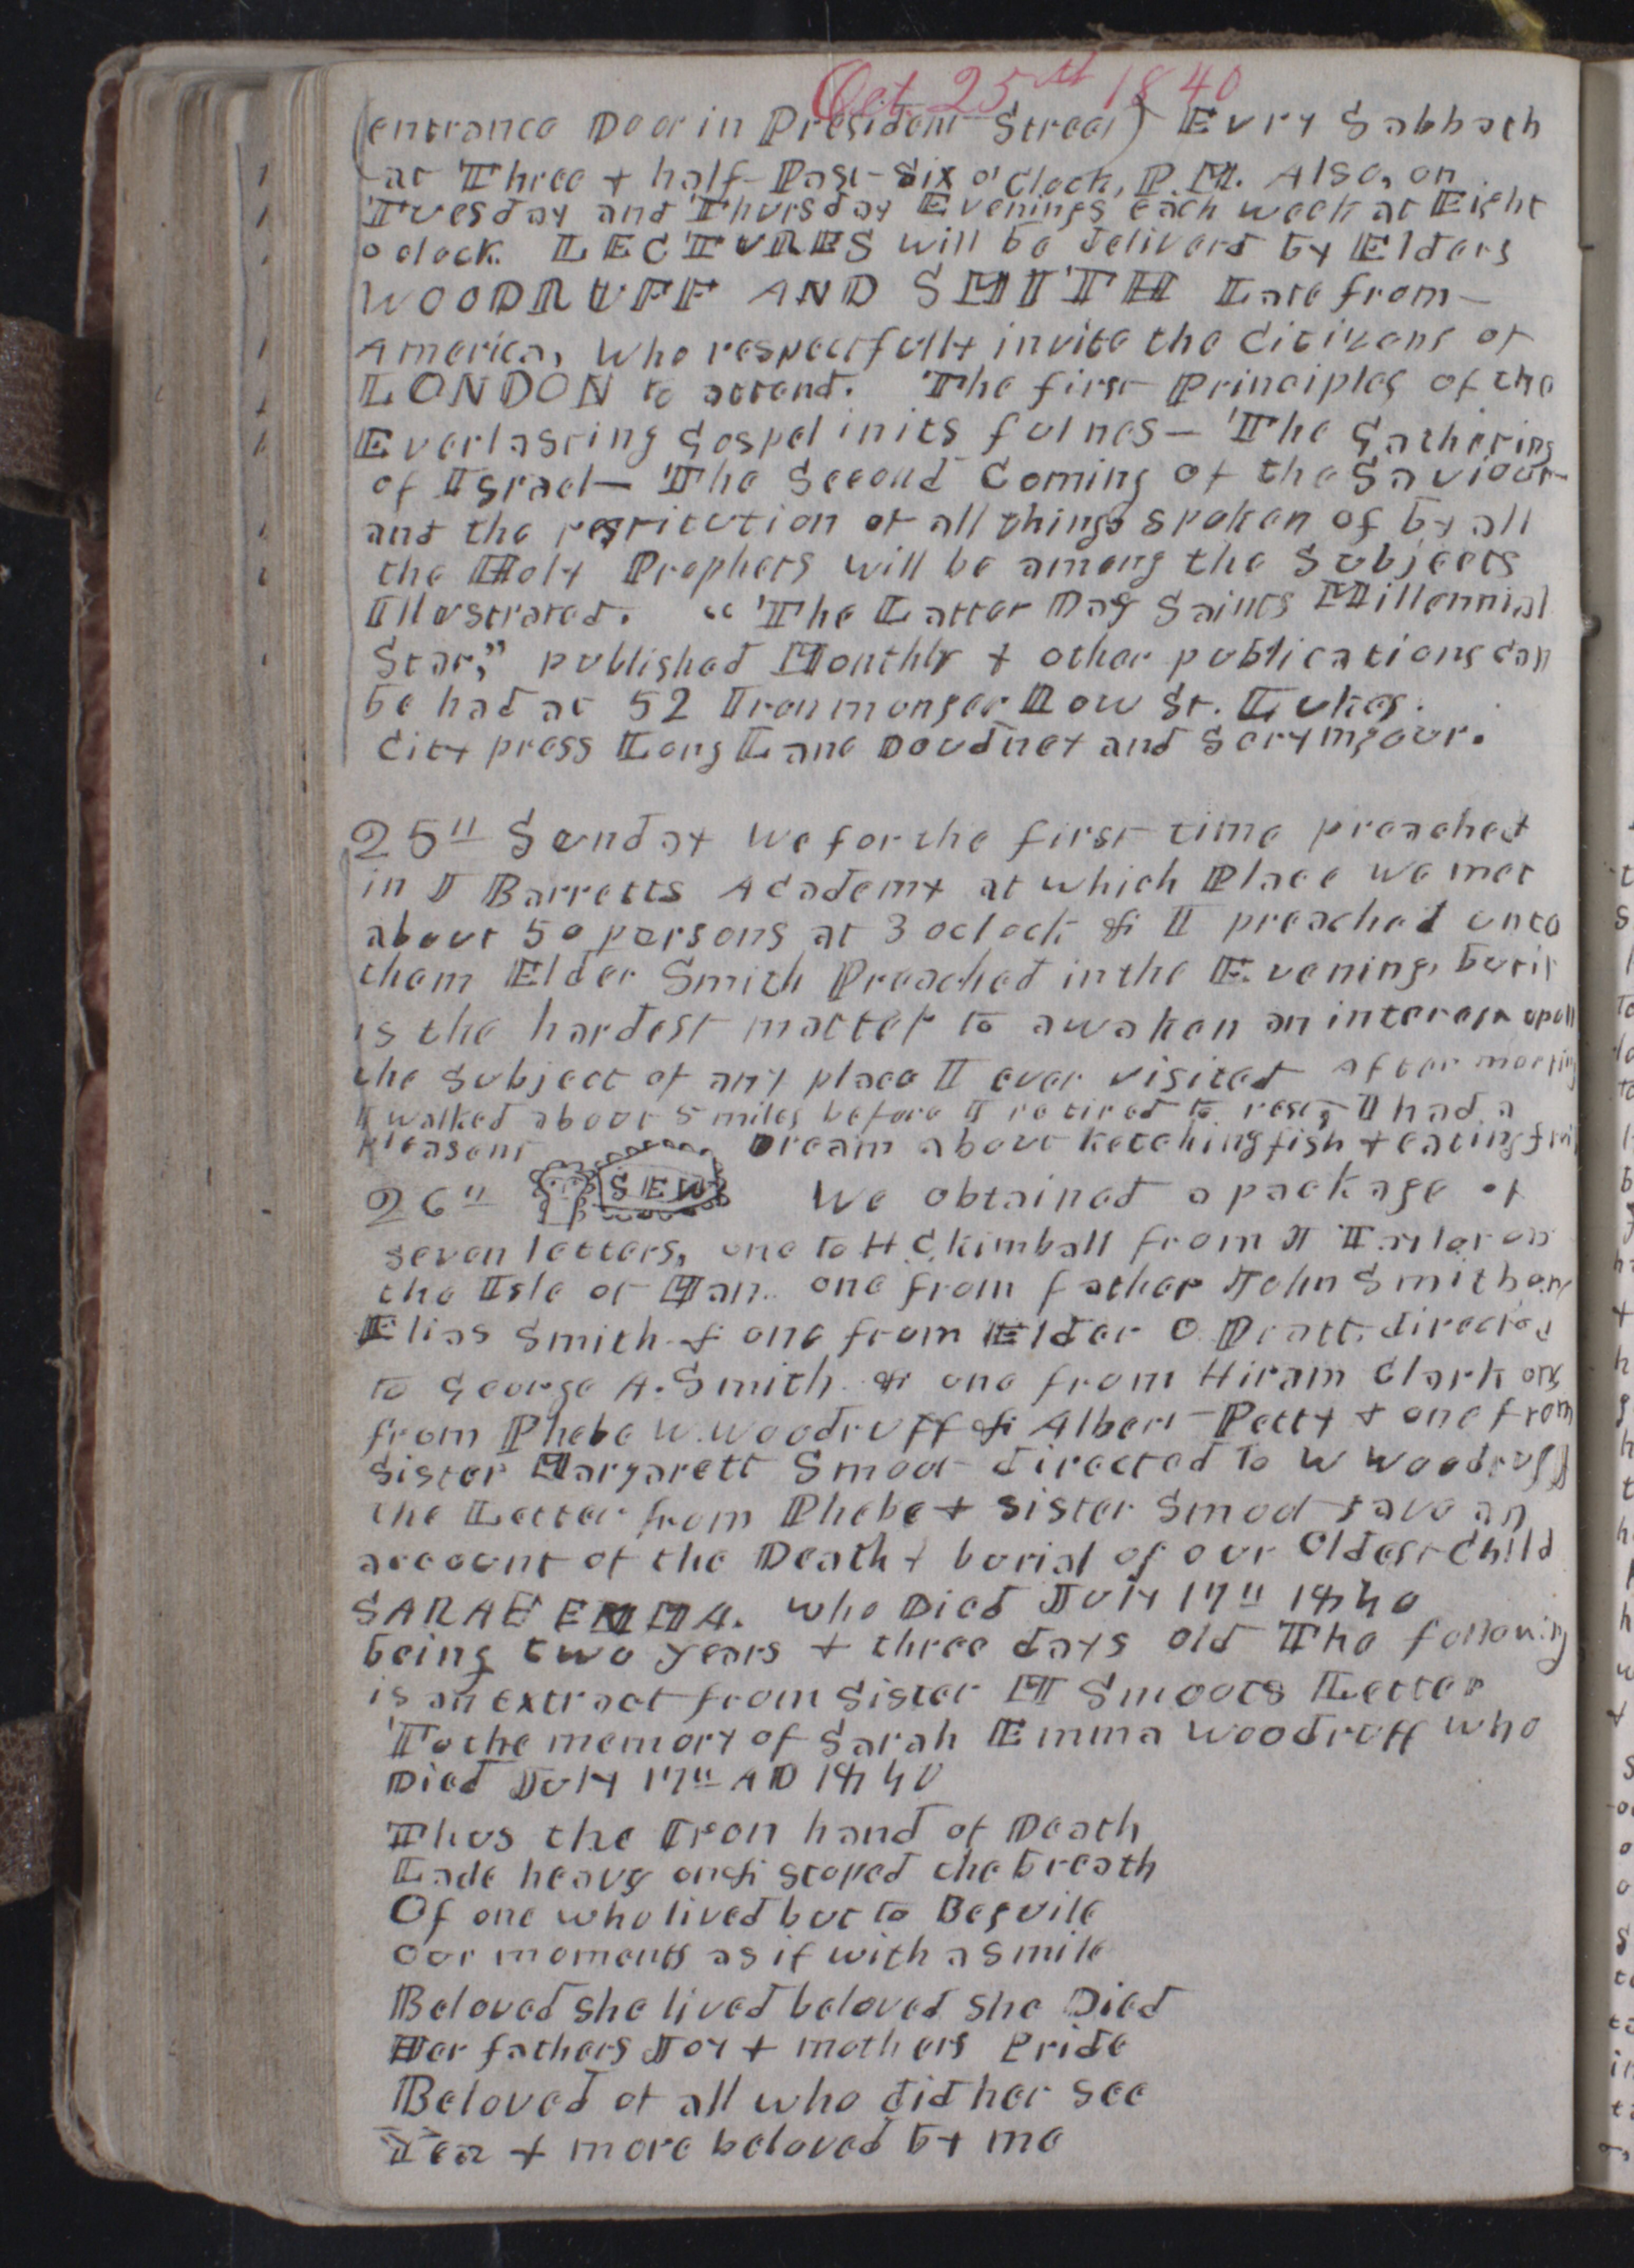 Oct. 25th 1840
(entrance Door in President Street) Evry Sabbath
at Three & half-Past-Six o'clock, P.M. Also, on
Tuesday and Thursday Evenings each week at Eight
oclock. LECTURES will be deliverd by Elders
WOODRUFF AND SMITH Late from-
America, Who respectfully invite the Citizens of
LONDON to attend. The first Principles of the
Everlasting Gospel in its fulness- The Gathering
of Israel- The Second Coming of the Saviour-
and the restitution of all things spoken of by all
the Holy Prophets will be among the Subjects
Illustrated. "The Latter Day Saints Millennial
Star," published Monthly & other publications can
be had at 52 Iron monger Row St. Lukes.
City press Long Lane Doudney and Scrymgour.
25th Sunday We for the first time preached
in J Barretts Academy at which Place we met
about 50 persons at 3 oclock & I preached unto
them Elder Smith Preached in the Evening, but it
is the hardest matter to awaken an interest upon
the subject of any place I ever visited After meeting
I walked about 5 miles before I retired to rest, I had a
Pleasant Dream about ketching fish & eating
26th SEW We obtained a package of
seven letters, one to H C. kimball from J Taylor on
the Isle of Man. one from father John Smith one
Elias Smith & one from Elder O. Pratt. directed
to George A. Smith & one from Hiram Clark one
from Phebe W. Woodruff & Albert Petty & one from
Sister Margarett Smoot directed to W Woodruff
the Letter from Phebe & sister Smoot gave an
account of the Death & burial of our Oldest Child
SARAH EMMA. who Died July 17th 1840
being two years & three days old The following
is an extract from Sister M Smoots Letter
To the memory of Sarah Emma Woodruff who
Died July 17th AD 1840
Thus the Iron hand of Death
Lade heavy on & stoped the breath
Of one who lived but to Beguile
Our moments as if with a smile
Beloved she lived beloved she Died
Her fathers Joy & mothers Pride
Beloved of all who did her see
Yea & more beloved by me